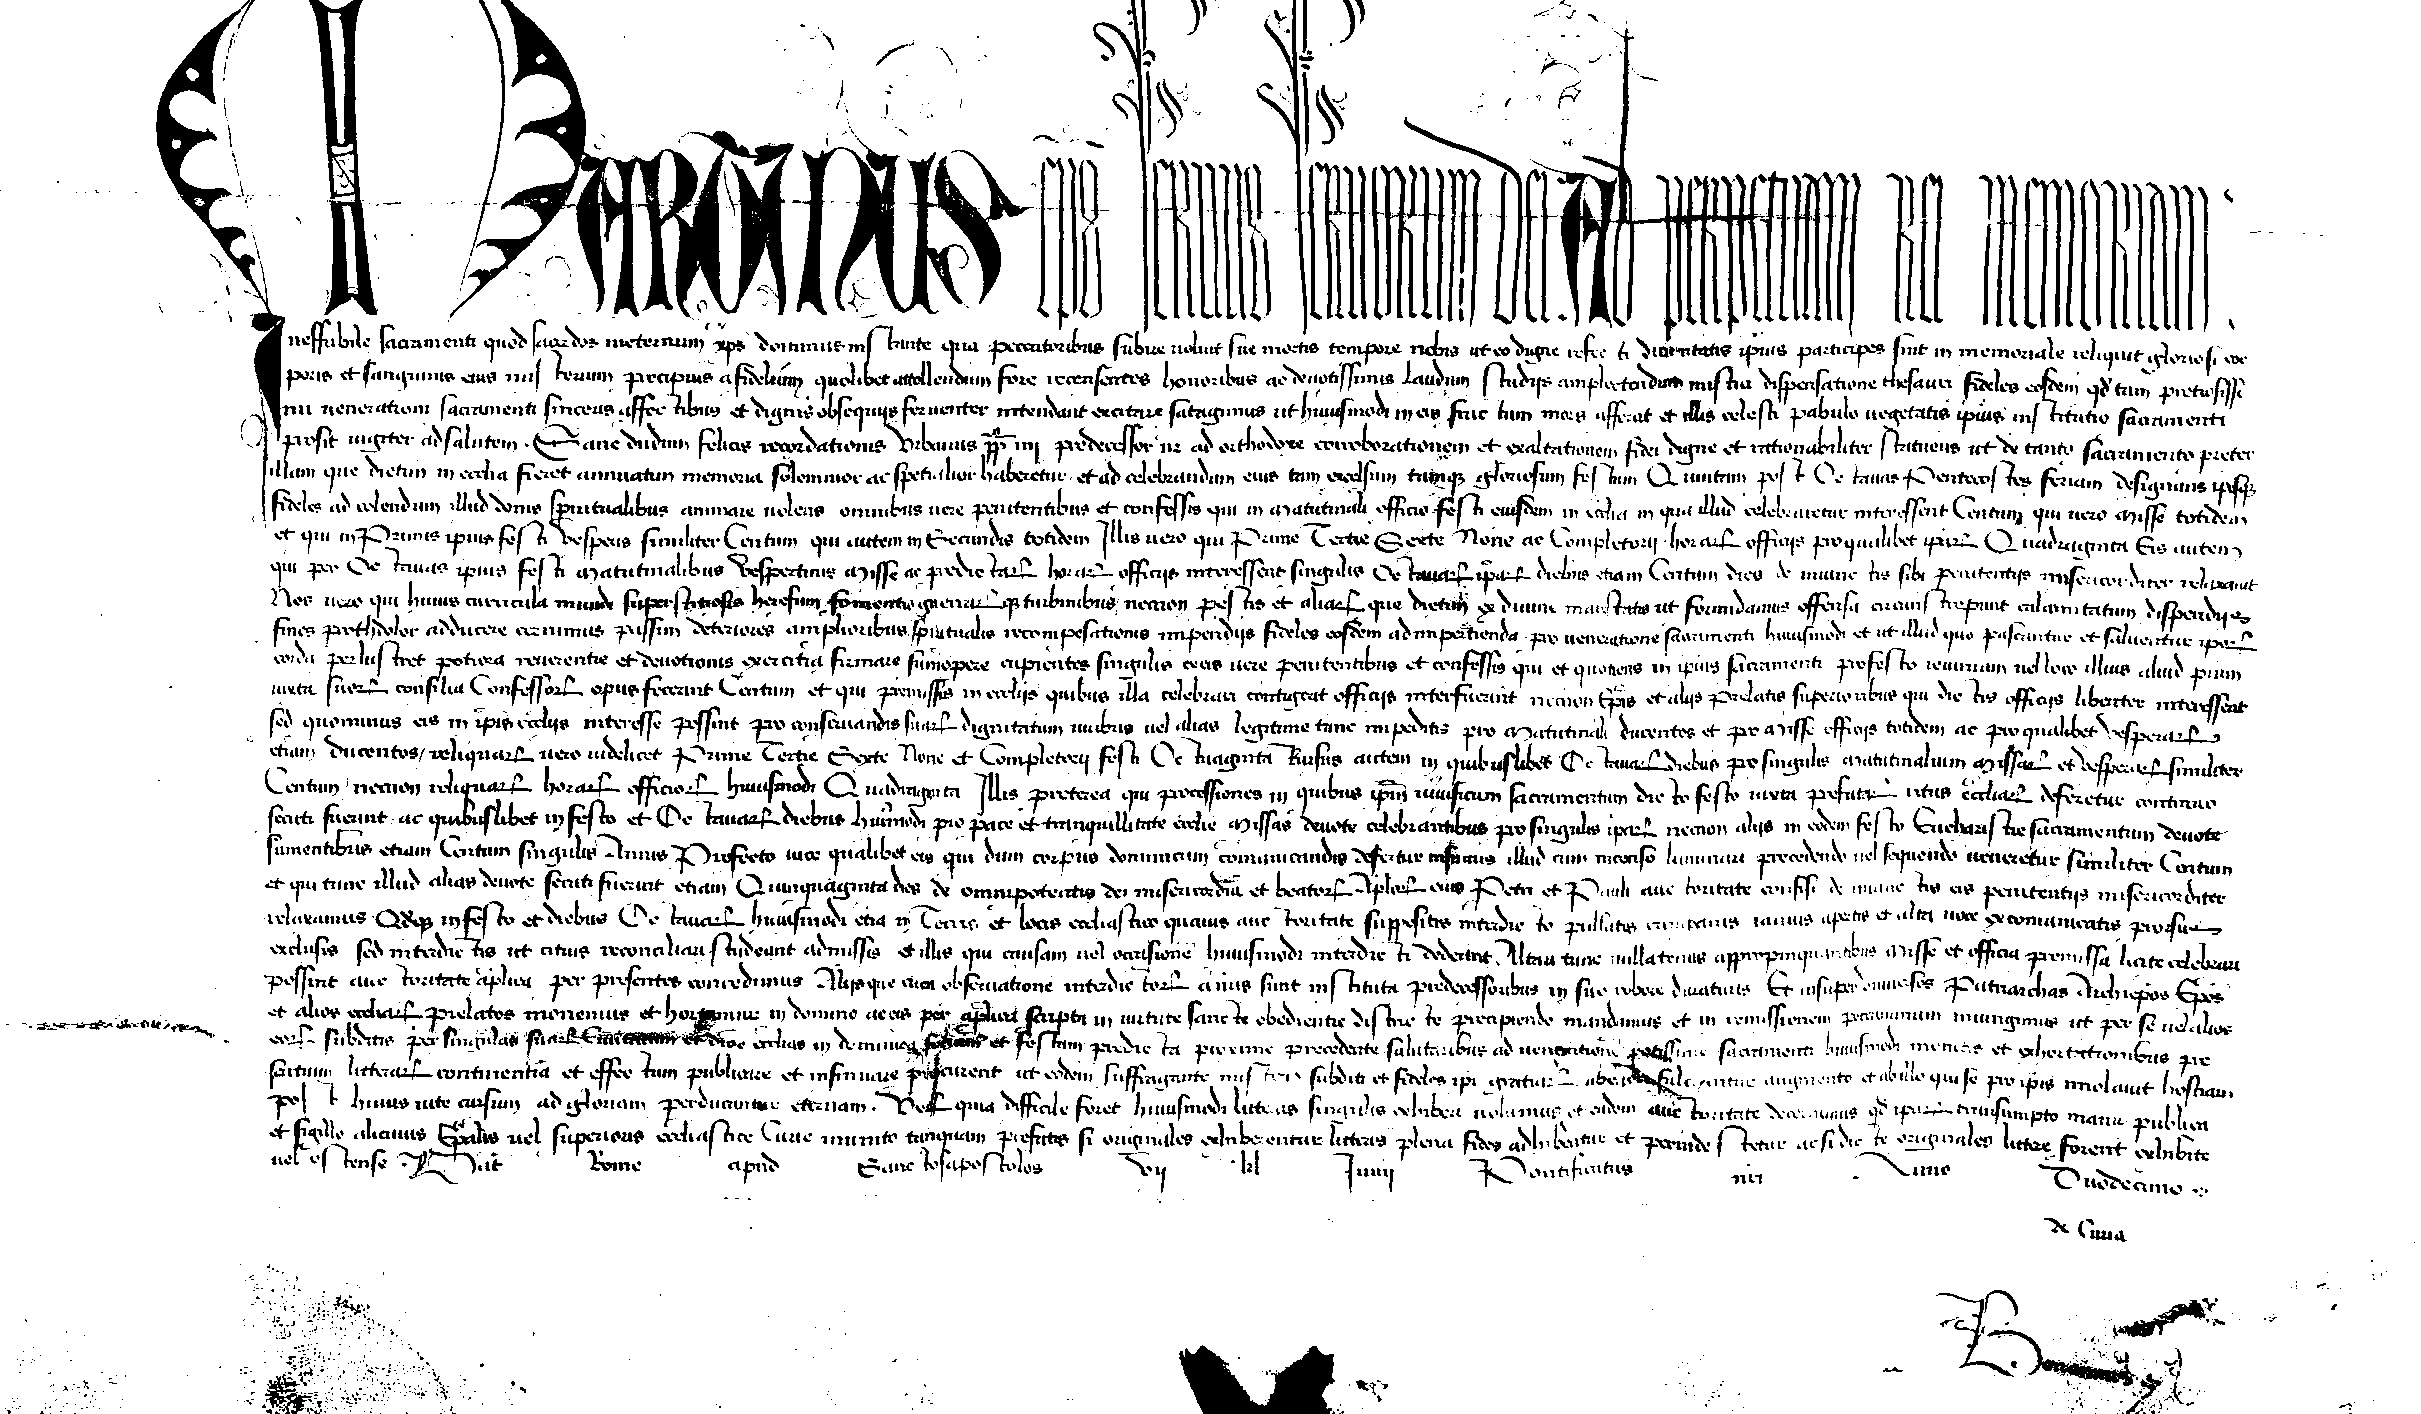 Martinus eps seruus seruorum dei Ad perpetuam rei memoriam
Ineffabile sacramenti quod sacerdos meternum xps dominus instante qua peccatoribus subire uoluit sue mortis tempore nobis ut eo digne refecti diuinitatis ipsius participes sint in memoriale reliquit gloriosi cor
poris et sanguinis eius misterium precipuis a fidelium quolibet attollendum fore recensentes honoribus ac deuotissimis laudum studijs amplectendum nistra dispensatione thesauri fideles eosdem qd tum pretiosissi
mi uenerationi sacramenti sinceris affectibus et dignis obsequijs feruenter intendant excitare satagimus ut huiusmodi in eis fructum mens afferat et illis celesti pabulo uegetatis ipsius institutio sacramenti
prosit iugiter ad salutem . Sane dudum felicis recordationis Urbanus pp iiij predecessor nr ad orthodoxe corroborationem et exaltationem fidei digne et rationabiliter statuens ut de tanto sacramento preter
illam que dietim in ecclia fieret annuatim memoria solemnior ac spetialior haberetur et ad celebrandum eius tam excelsum tamqz gloriosum festum Quintam post Octauas Pentecostes feriam designans ipsosqz
fideles ad colendum illud donis spiritualibus animare uolens omnibus uere penitentibus et confessis qui in matutinali officio festi eiusdem in ecclia in qua illud celebraretur interessent Centum qui uero Misse totidem
et qui in Primis ipsius festi Vesperis similiter Centum qui autem in Secundis totidem Illis uero qui Prime Tertie Sexte None ac Completorij horarum officijs pro qualibet ipsarum Quadraginta Eis autem
qui per Octauas ipsius festi Matutinalibus Vespertinis Misse ac predictarum horarum officijs interessent singulis Octauarum ipsarum diebus etiam Centum dies de iniunctis sibi penitentijs misericorditer relaxauit
Nos uero qui huius curricula mundi superstitiosis heresum fomentis guerrarum qz turbinibus necnon pestis et aliarum que dietim ex diuine maiestatis ut formidamus offensa circumstrepunt calamitatum dispendijs
fines prothdolor adducere cernimus passim deteriores amplioribus spiritualis recompensationis impendijs fideles eosdem ad impertienda pro ueneratione sacramenti huiusmodi et ut illud quo pascuntur et saluentur ipsorum
corda perlustret potiora reuerentie et deuotionis exercitia firmare summopere cupientes singulis ceis uere penitentibus et confessis qui et quotiens in ipsius sacramenti profesto ieiunium uel loco illius aliud pium
iuxta suorum consilia Confessorum opus fecerint Centum et qui premissis in ecclijs quibus illa celebrari contigerit officijs interfuerint necnon Epis et alijs Prelatis superioribus qui dictis officijs libenter interessent
sed quominus eis in ipsis ecclijs interesse possint pro conseruandis suarum dignitatum iuribus uel alias legitime tunc impeditis pro Matutinali ducentos et pro Misse officijs totidem ac pro qualibet Vesperarum
etiam ducentos, reliquarum uero uidelicet Prime Tertie Sexte None et Completorij festi Octuaginta Rursus autem in quibuslibet Octauarum diebus pro singulis Matutinalium Missarum et Vesperarum similiter
Centum necnon reliquarum horarum officiorum huiusmodi Quadraginta Illis preterea qui processiones in quibus ipm uiuificum sacramentum dicto festo iuxta prefatarum ritus eccliarum deferetur continuo
secuti fuerint ac quibuslibet in festo et Octauarum diebus huiusmodi pro pace et tranquillitate ecclie Missas deuote celebrantibus pro singulis ipsarum necnon alijs in eodem festo Eucharistie sacramentum deuote
sumentibus etiam Centum singulis Annis Profecto uice qualibet eis qui dum corpus dominicum comunicandis defertur infirmis illud cum incenso luminari precedendo uel sequendo ueneretur similiter Centum
et qui tunc illud alias deuote secuti fuerint etiam Quinquaginta dies de omnipotentis dei misericordia et beatorum Aplorum eius Petri et Pauli auctoritate confisi de iniunctis eis penitentijs misericorditer
relaxamus Qdqz in festo et diebus Octauarum huiusmodi etia in Terris et locis ecclesiastico quauis auctoritate suppositis interdicto pulsatis campanis ianuis apertis et alta uoce excomunicatis prorsus
exclusis sed interdictis ut citius reconciliari studeant admissis et illis qui causam uel occasione huiusmodi interdicti dederint Altari tunc nullatenus appropinquantibus Misse et officia premissa licite celebrari
possint auctoritate aplica per presentes concedimus Alijsque circa obseruatione interdictorum a ius sunt instituta predecessoribus in suo robore duraturis Et insuper uniuersos Patriarchas Archiepos Epos
et alios eccliarum prelatos monemus et hortamur in domino ac eis per aplica scripta in uirtute sancte obedientie districte precipiendo mandamus et in remissionem peccaminum iniungimus ut per se uel alios
eorum subditis per singulas suarum Ciuitatum et dioc ecclias in dominica et festum predicta proxime precedente salutaribus ad uenerationem potissime sacramenti huiusmodi monitis et exhortationibus pre
sentium litterarum continentia et effectum publicare et insinuare procurent ut eodem suffragante misterio subditi et fideles ipi gratiarum augmento et ab illo qui se pro ipsis inmolauit hostiam
post huius uite cursum ad gloriam perducantur eternam . Verum quia difficile foret huiusmodi litteras singulis exhiberi uolumus et eadem auctoritate decernimus qd ipsarum transumpto manu publica
et sigillo alicuius Epalis uel superioris ecclesiastice Curie munito tanquam prefatis si originales exhiberentur littere plena fides adhibeatur et perinde stetur ac si dicte originales littere forent exhibite
uel ostense . Dat Rome apud Sanctosapostolos vij kl Junij Pontificatus nri Anno Duodecimo
de Curia